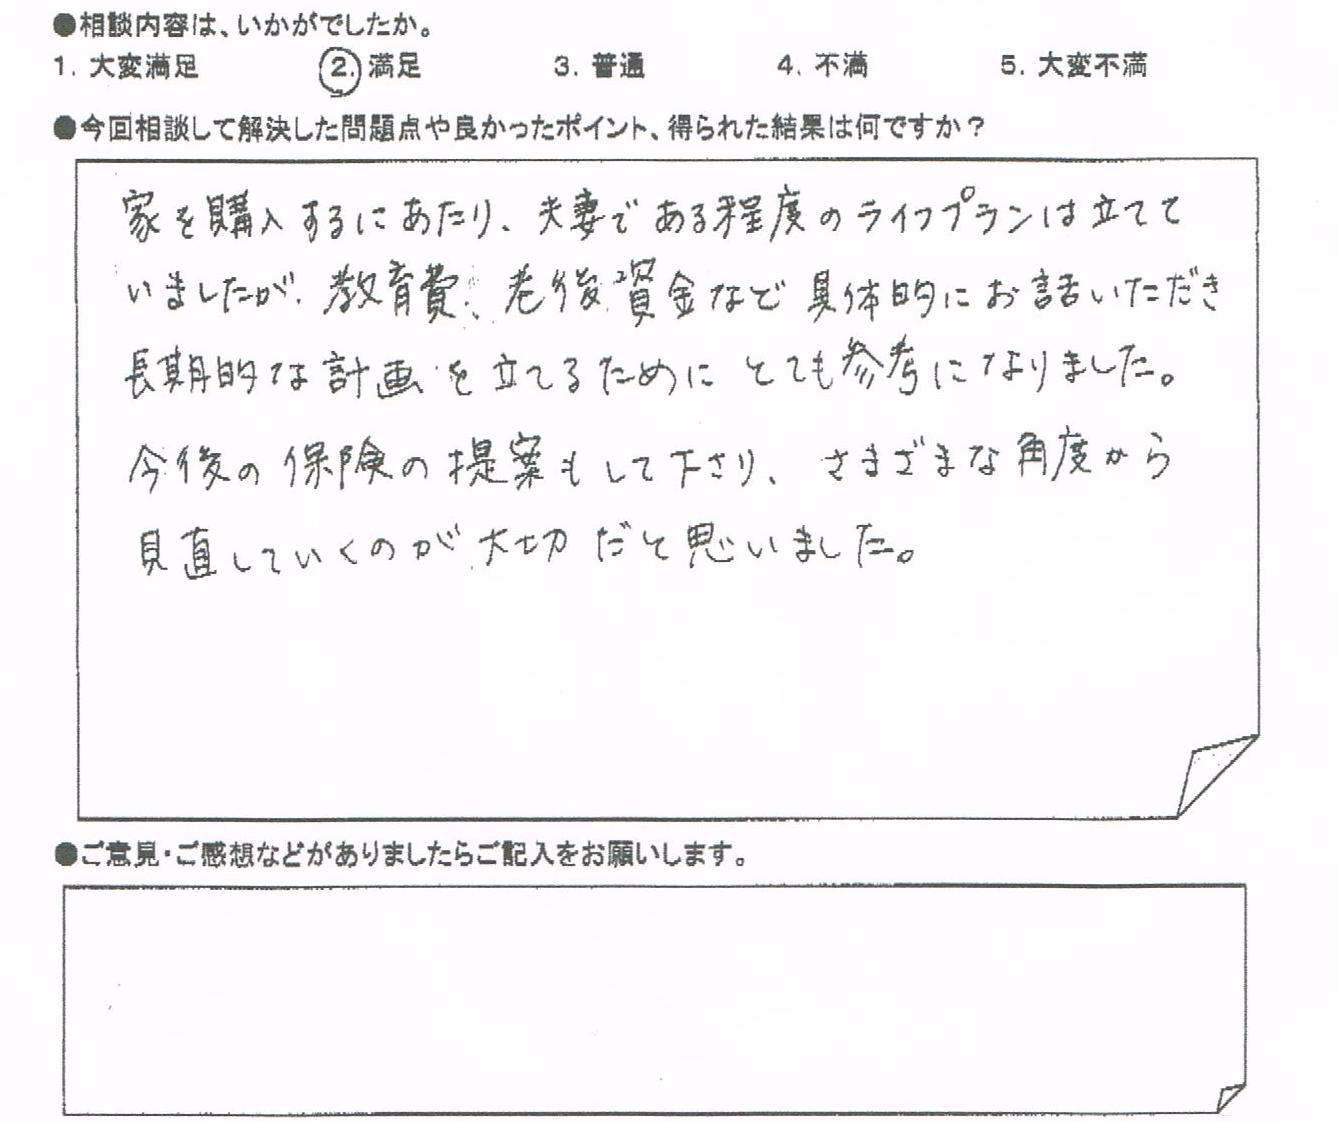 ●相談内容は、いかがでしたか。
1. 大変満足 2. 満足 3. 普通 4. 不満 5. 大変不満
●今回相談して解決した問題点や良かったポイント、得られた結果は何ですか？
家を購入するにあたり、夫妻である程度のライフプランは立てて
いましたが、教育費、老後資金など具体的にお話いただき
長期的な計画を立てるためにとても参考になりました。
今後の保険の提案もして下さり、さまざまな角度から
見直していくのが大切だと思いました。
●ご意見・ご感想などがありましたらご記入をお願いします。